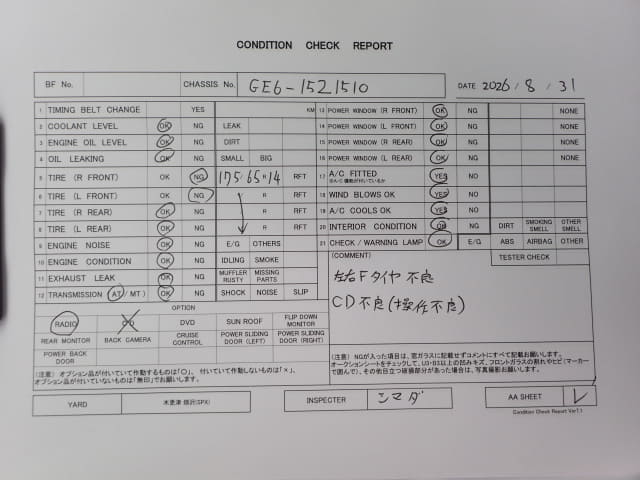 CONDITION CHECK REPORT
BF No. CHASSIS No. GE6-1521510 DATE 2026/8/31
1 TIMING BELT CHANGE YES KM
2 COOLANT LEVEL OK NG LEAK
3 ENGINE OIL LEVEL OK NG DIRT
4 OIL LEAKING OK NG SMALL BIG
5 TIRE (R FRONT) OK NG 175/65R14 RFT
6 TIRE (L FRONT) OK NG R RFT
7 TIRE (R REAR) OK NG R RFT
8 TIRE (L REAR) OK NG R RFT
9 ENGINE NOISE OK NG E/G OTHERS
10 ENGINE CONDITION OK NG IDLING SMOKE
11 EXHAUST LEAK OK NG MUFFLER RUSTY MISSING PARTS
12 TRANSMISSION (AT/MT) OK NG SHOCK NOISE SLIP
13 POWER WINDOW (R FRONT) OK NG NONE
14 POWER WINDOW (L FRONT) OK NG NONE
15 POWER WINDOW (R REAR) OK NG NONE
16 POWER WINDOW (L REAR) OK NG NONE
17 A/C FITTED YES NO
18 WIND BLOWS OK YES NO
19 A/C COOLS OK YES NO
20 INTERIOR CONDITION OK NG DIRT SMOKING SMELL OTHER SMELL
21 CHECK/WARNING LAMP OK E/G ABS AIRBAG OTHER
(COMMENT) TESTER CHECK
左右Fタイヤ不良
CD不良(操作不良)
OPTION
RADIO CD DVD SUN ROOF FLIP DOWN MONITOR
REAR MONITOR BACK CAMERA CRUISE CONTROL POWER SLIDING DOOR (LEFT) POWER SLIDING DOOR (RIGHT)
POWER BACK DOOR
(注意) オプション品が付いていて作動するものは「○」、付いていて作動しないものは「×」、
オプション品が付いていないものは「無印」でお願いします。
(注意) NGが入った項目は、窓ガラスに記載せずコメントにすべて記載お願いします。
オークションシートをチェックして、U3・B3以上の凹みキズ、フロントガラスの割れやヒビ(マーカー
で囲んで)、その他目立つ破損部分があった場合は、写真撮影お願いします。
YARD INSPECTER シマダ AA SHEET レ
Condition Check Report Ver1.1